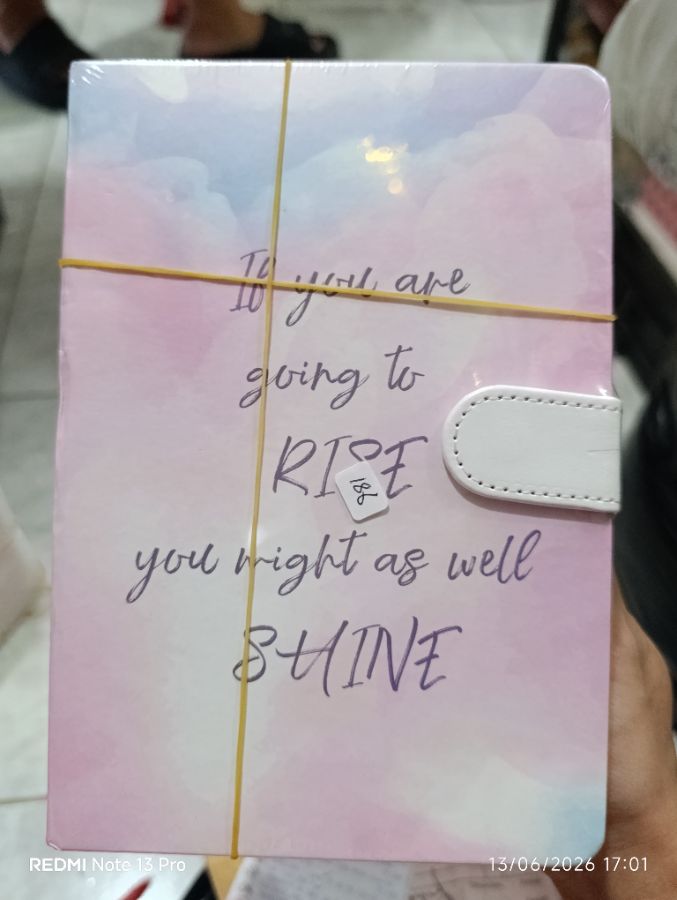 If you are
going to
RISE
186
you might as well
SHINE
REDMI Note 13 Pro
13/06/2026 17:01